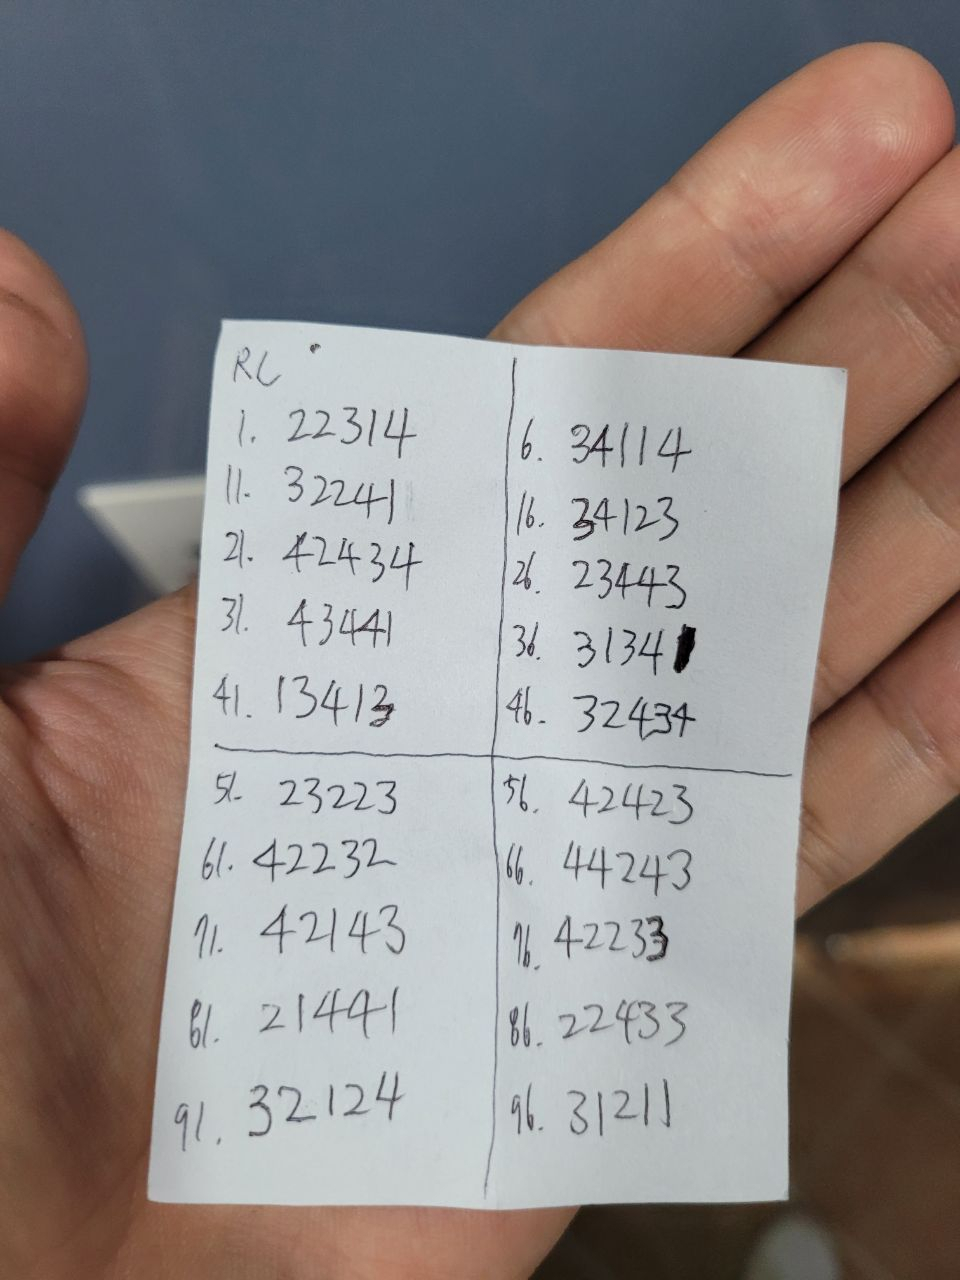 RC
1. 22314
11. 32241
21. 42434
31. 43441
41. 13413
6. 34114
16. 34123
26. 23443
36. 31341
46. 32434
51. 23223
61. 42232
71. 42143
81. 21441
91. 32124
56. 42423
66. 44243
76. 42233
86. 22433
96. 31211